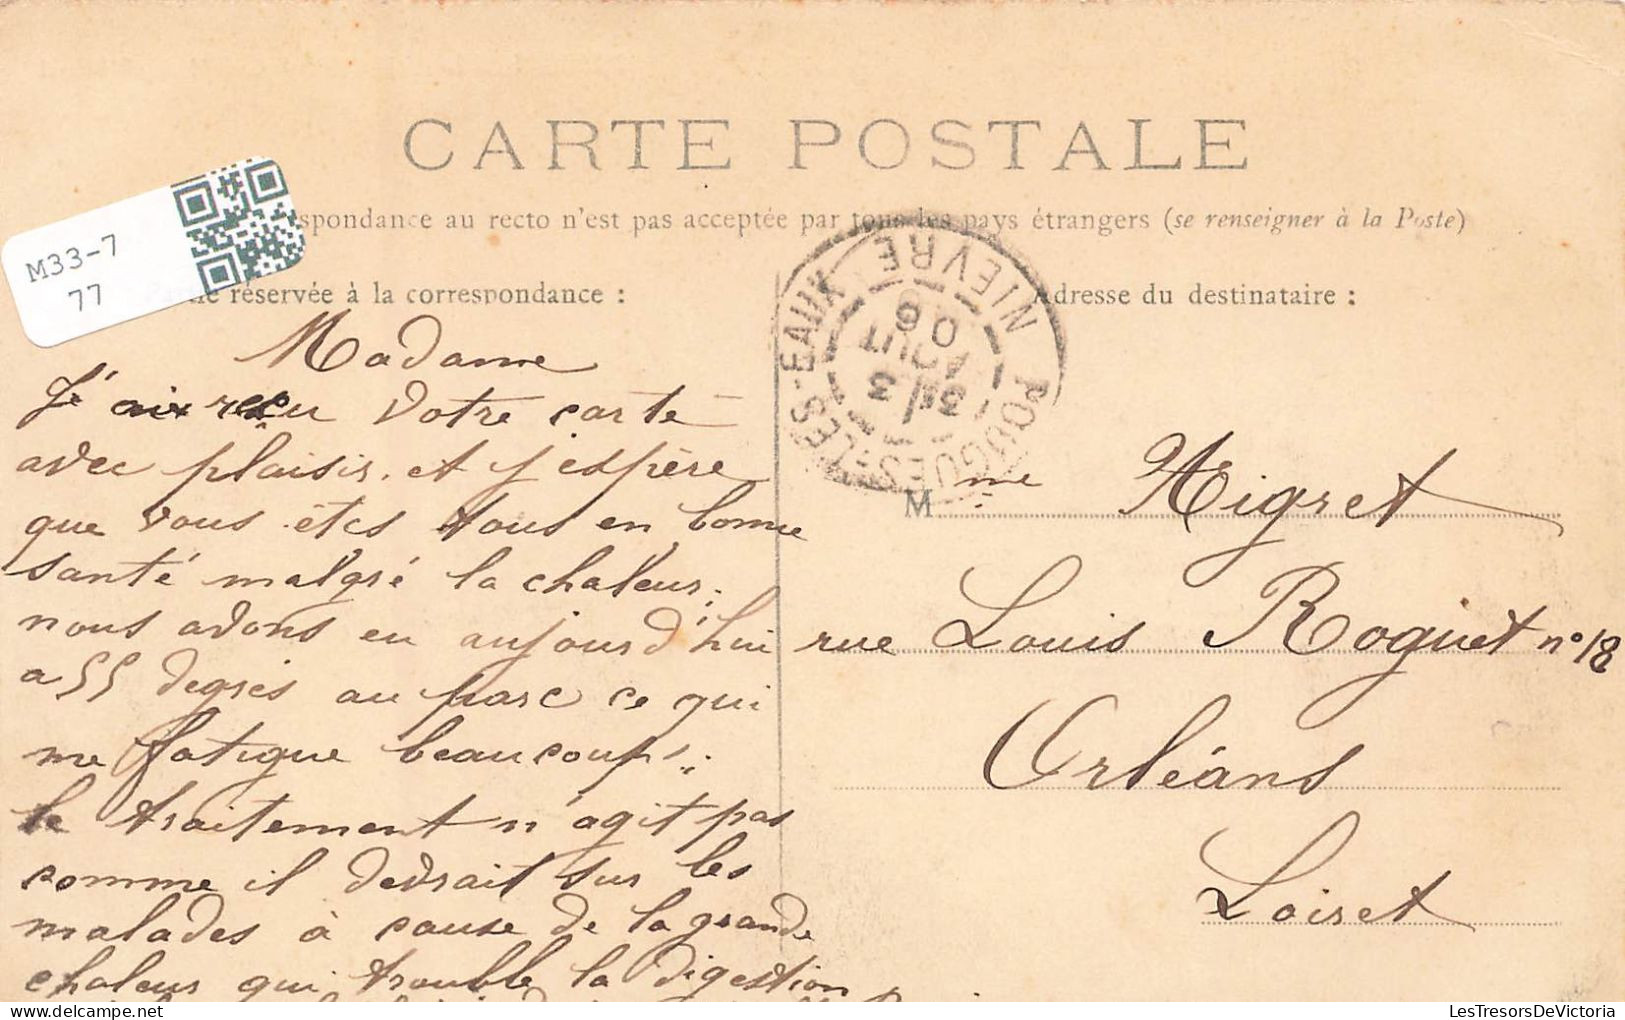 CARTE POSTALE
spondance au recto n'est pas acceptée par tous les pays étrangers (se renseigner à la Poste)
M33-7
77
réservée à la correspondance :
Adresse du destinataire :
POUGUES-LES-EAUX NIEVRE
3
AOUT
06
Madame
J'ai reçu votre carte
avec plaisir. et j'espère
que vous êtes tous en bonne
santé malgré la chaleur.
nous avons eu aujourd'hui
a 55 degrés au parc ce qui
me fatigue beaucoup.
le traitement n'agit pas
comme il devrait sur les
malades à cause de la grande
chaleur qui trouble la digestion
Mme Aigret
rue Louis Roguet n° 18
Orléans
Loiret
LesTresorsDeVictoria